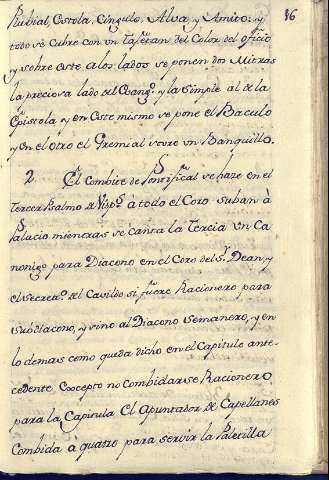 16
Plubial, Estola, Cingullo, Alva y Amito: y
todo se cubre con un Tafetan del Color del oficio
y sobre este a los lados se ponen dos Mitras
la preciosa lado del Evangº y la simple al de la
Epistola y en este mismo se pone el Baculo
y en el otro el Gremial sovre un Banquillo.
2. El Combite de Pontifical se haze en el
Tercer Psalmo de Vispˢ à todo el Coro suban à
Palacio mientras se canta la Tercia un Ca
nonigo para Diacono en el Coro del Sʳ Dean, y
el Secreº del Cavildo si fuere Racionero para
Subdiacono, y sino al Diacono Semanero, y en
lo demas como queda dicho en el Capitulo ante-
cedente Excepto no Combidarse Racionero
para la Capitula El Apuntador de Capellanes
Combida à quatro para servir la Paletilla